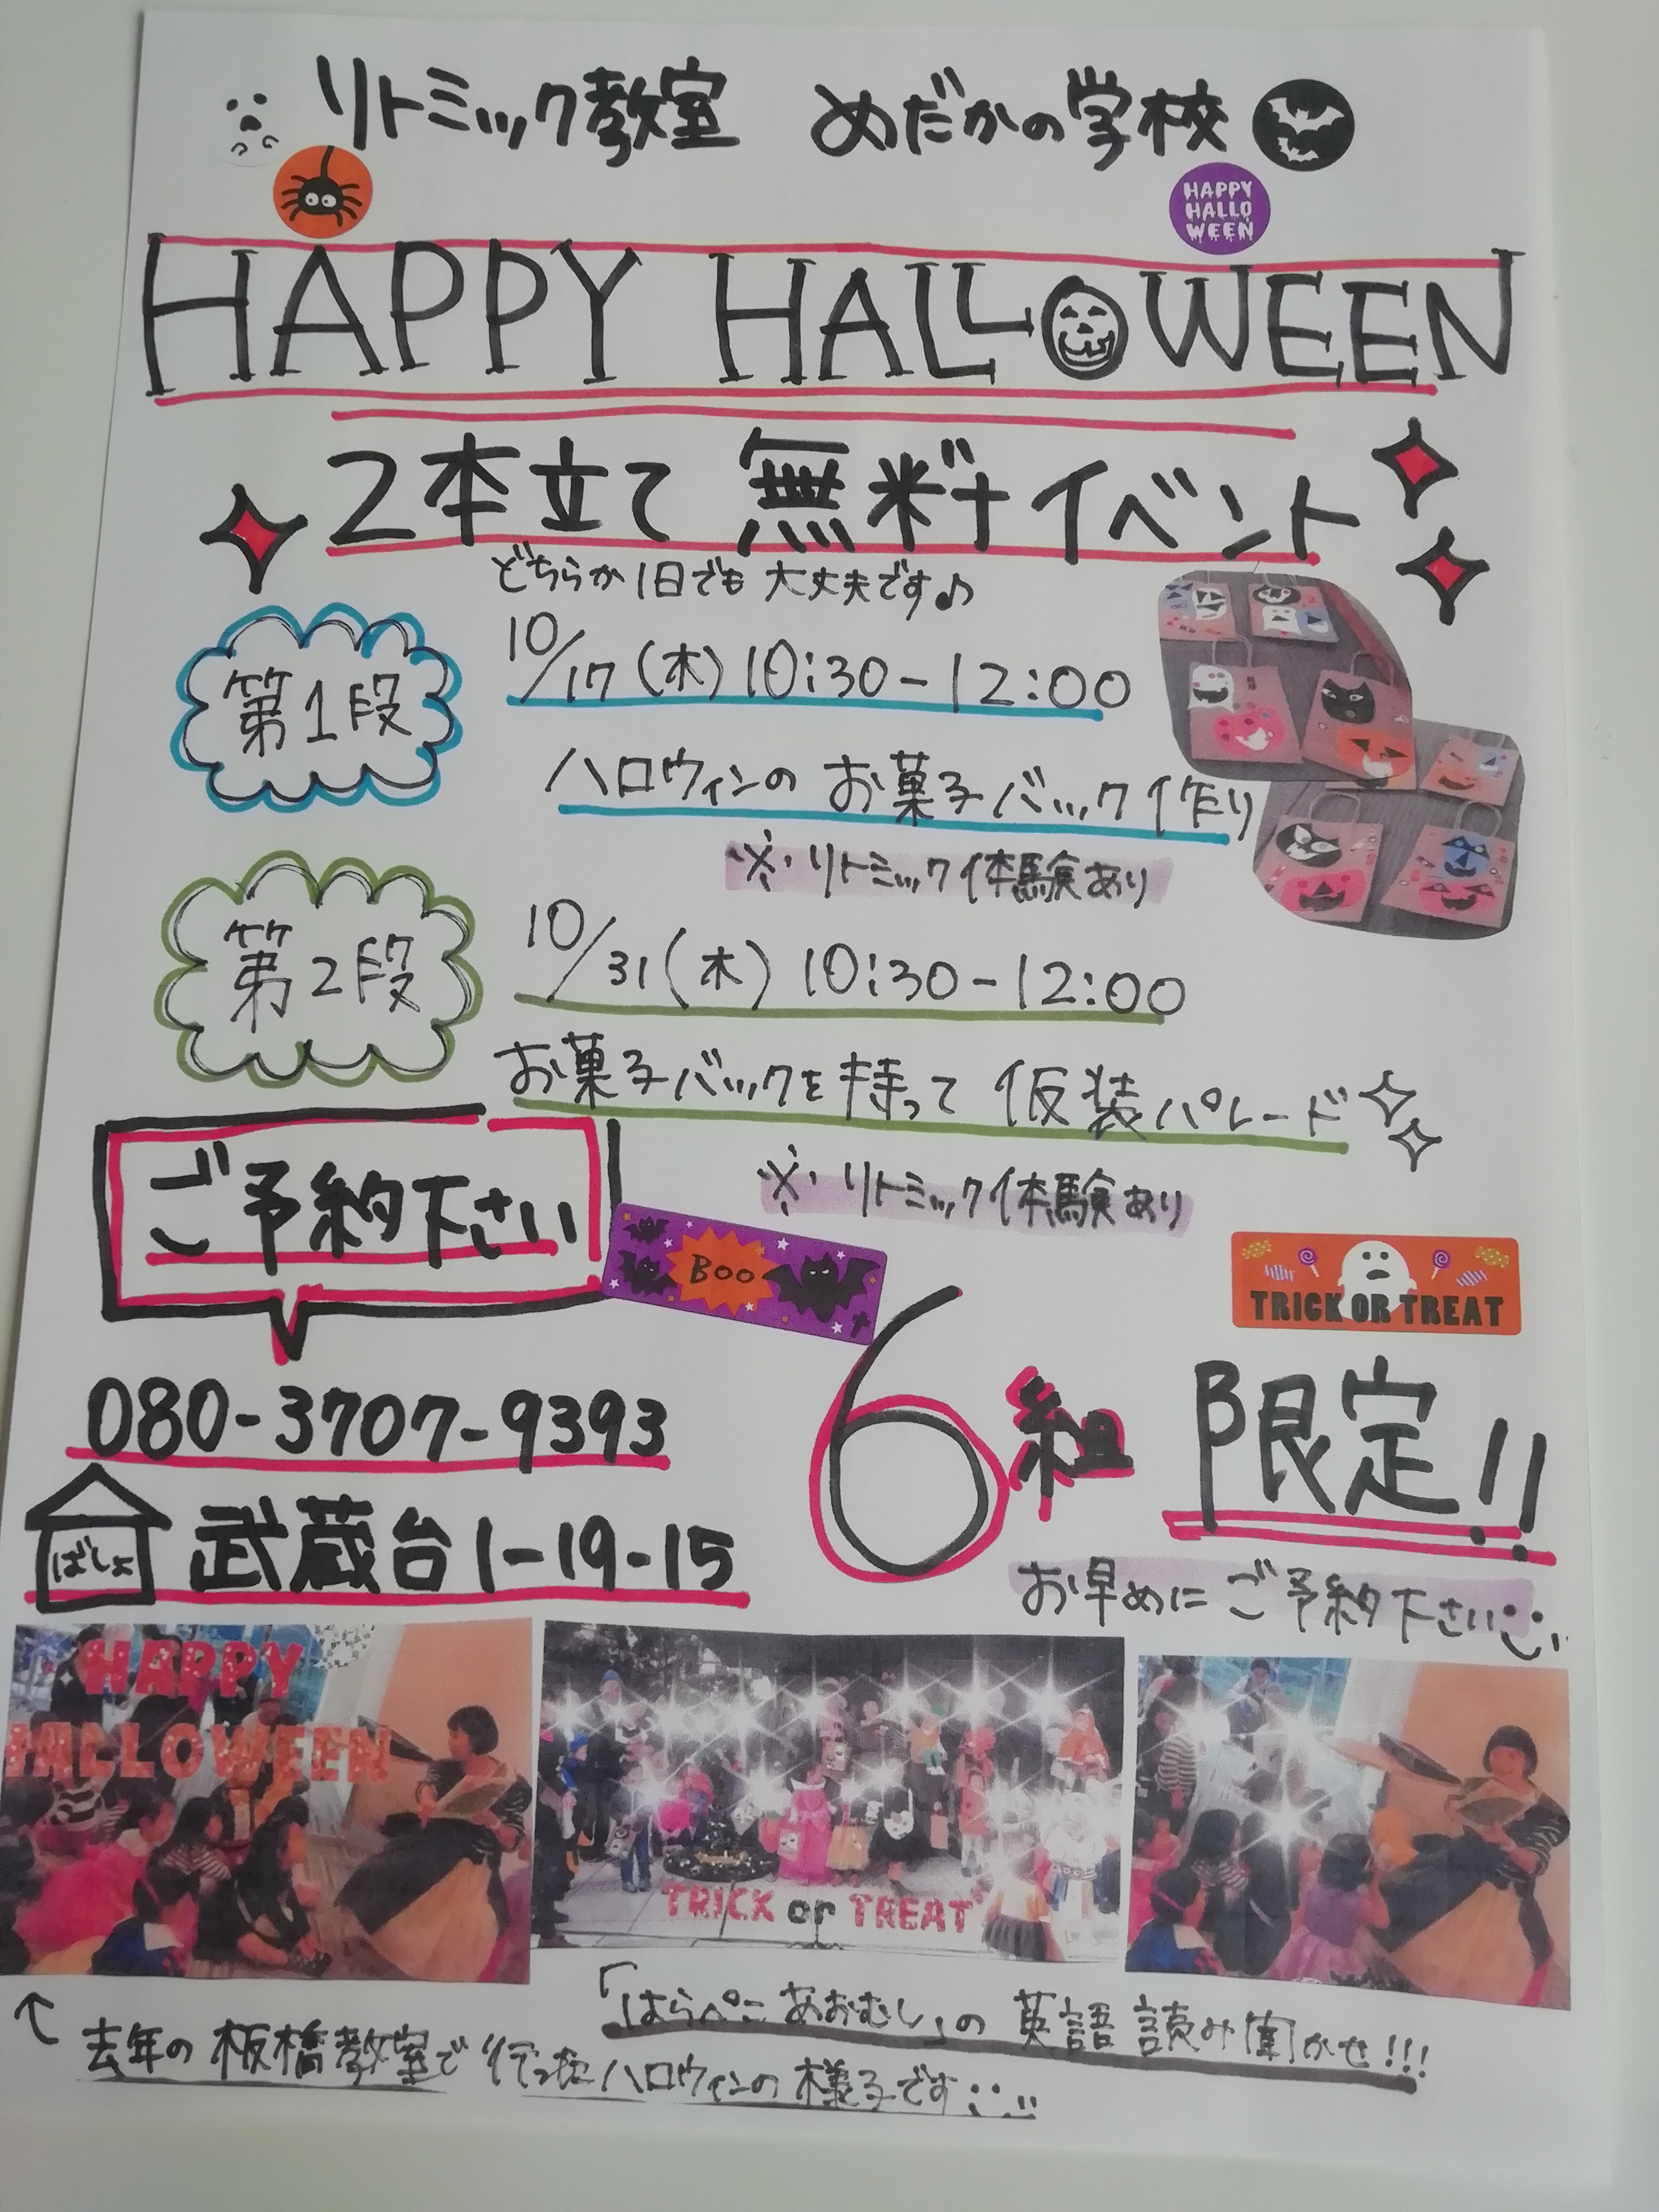 リトミック教室 めだかの学校
HAPPY
HALLO
WEEN
HAPPY HALLOWEEN
2本立て 無料イベント
どちらか1日でも大丈夫です♪
第1段
10/17(木)10:30-12:00
ハロウィンのお菓子バック作り
※リトミック体験あり
第2段
10/31(木)10:30-12:00
お菓子バックを持って仮装パレード
※リトミック体験あり
ご予約下さい
BOO
TRICK OR TREAT
080-3707-9393
6組限定!!
ばしょ 武蔵台1-19-15
お早めにご予約下さい
HAPPY
HALLOWEEN
TRICK or TREAT
「はらぺこあおむし」の英語読み聞かせ!!!
↑去年の板橋教室で行ったハロウィンの様子です